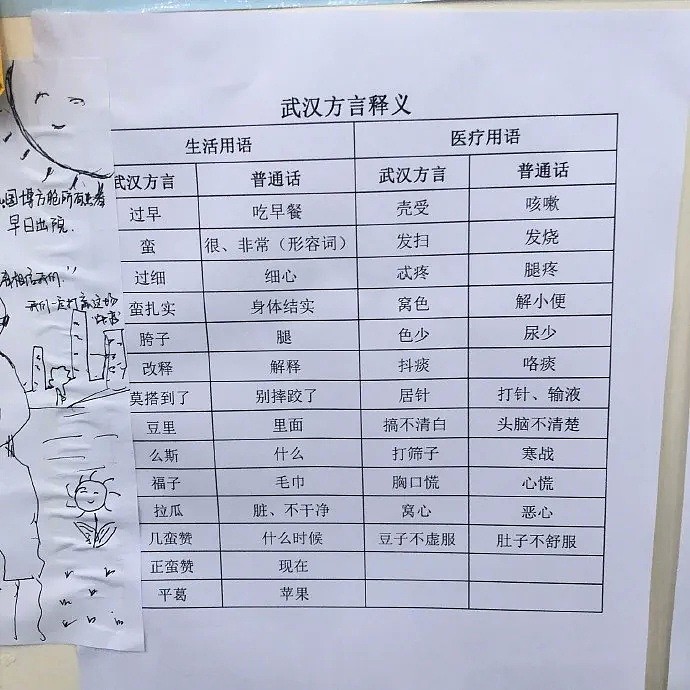 武汉方言释义
生活用语 医疗用语
武汉方言 普通话 武汉方言 普通话
过早 吃早餐 壳受 咳嗽
蛮 很、非常（形容词） 发扫 发烧
过细 细心 忒疼 腿疼
蛮扎实 身体结实 窝色 解小便
胯子 腿 色少 尿少
改释 解释 抖痰 咯痰
莫搭到了 别摔跤了 居针 打针、输液
豆里 里面 搞不清白 头脑不清楚
么斯 什么 打筛子 寒战
福子 毛巾 胸口慌 心慌
拉瓜 脏、不干净 窝心 恶心
几蛮赞 什么时候 豆子不虚服 肚子不舒服
正蛮赞 现在
平葛 苹果
国博方舱所有患者
早日出院.
相信我们
我们一定打赢这场